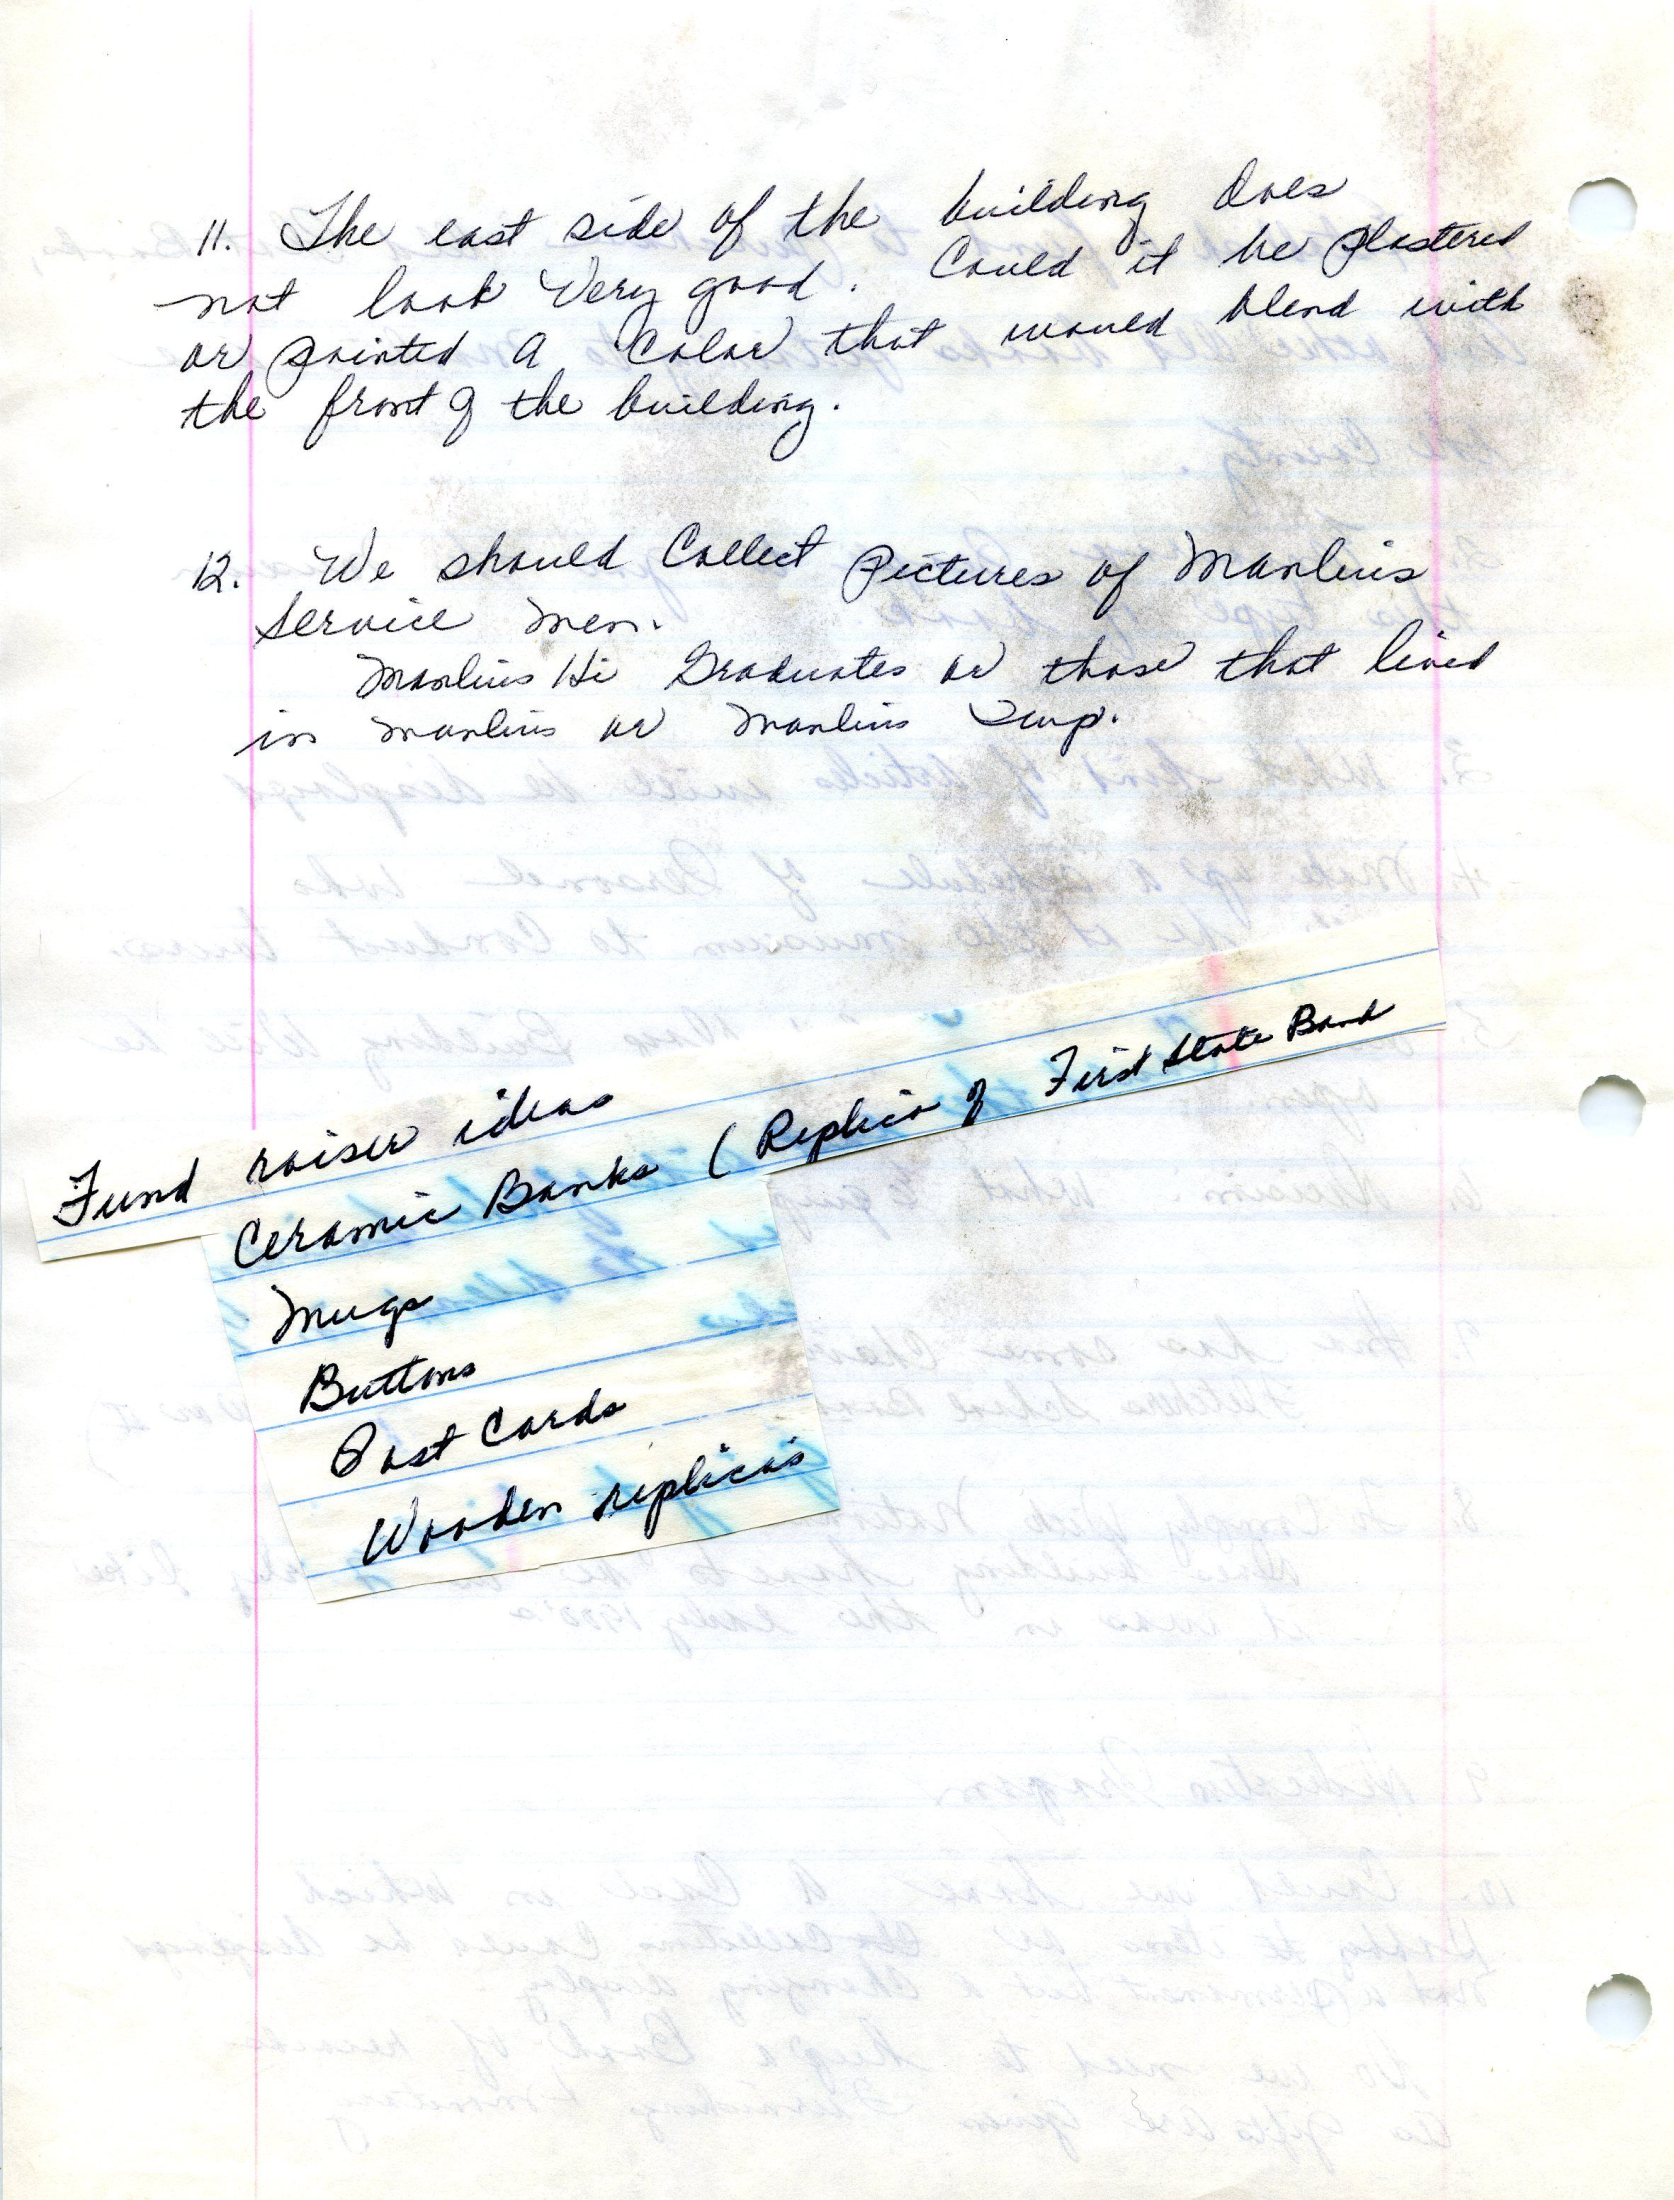 11. The east side of the building does
not look very good. Could it be plastered
or painted a color that would blend with
the front of the building.
12. We should Collect Pictures of Manlius
Service men.
Manlius Hi Graduates or those that lived
in Manlius or Manlius Twp.
Fund raiser ideas
Ceramic Banks (Replica of First State Bank
Mugs
Buttons
Post Cards
Wooden replica's